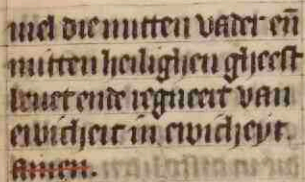 mel die mitten vader en̄
mitten heilighen gheest
leuet ende regneert van
ewicheit in ewicheyt.
Amen.